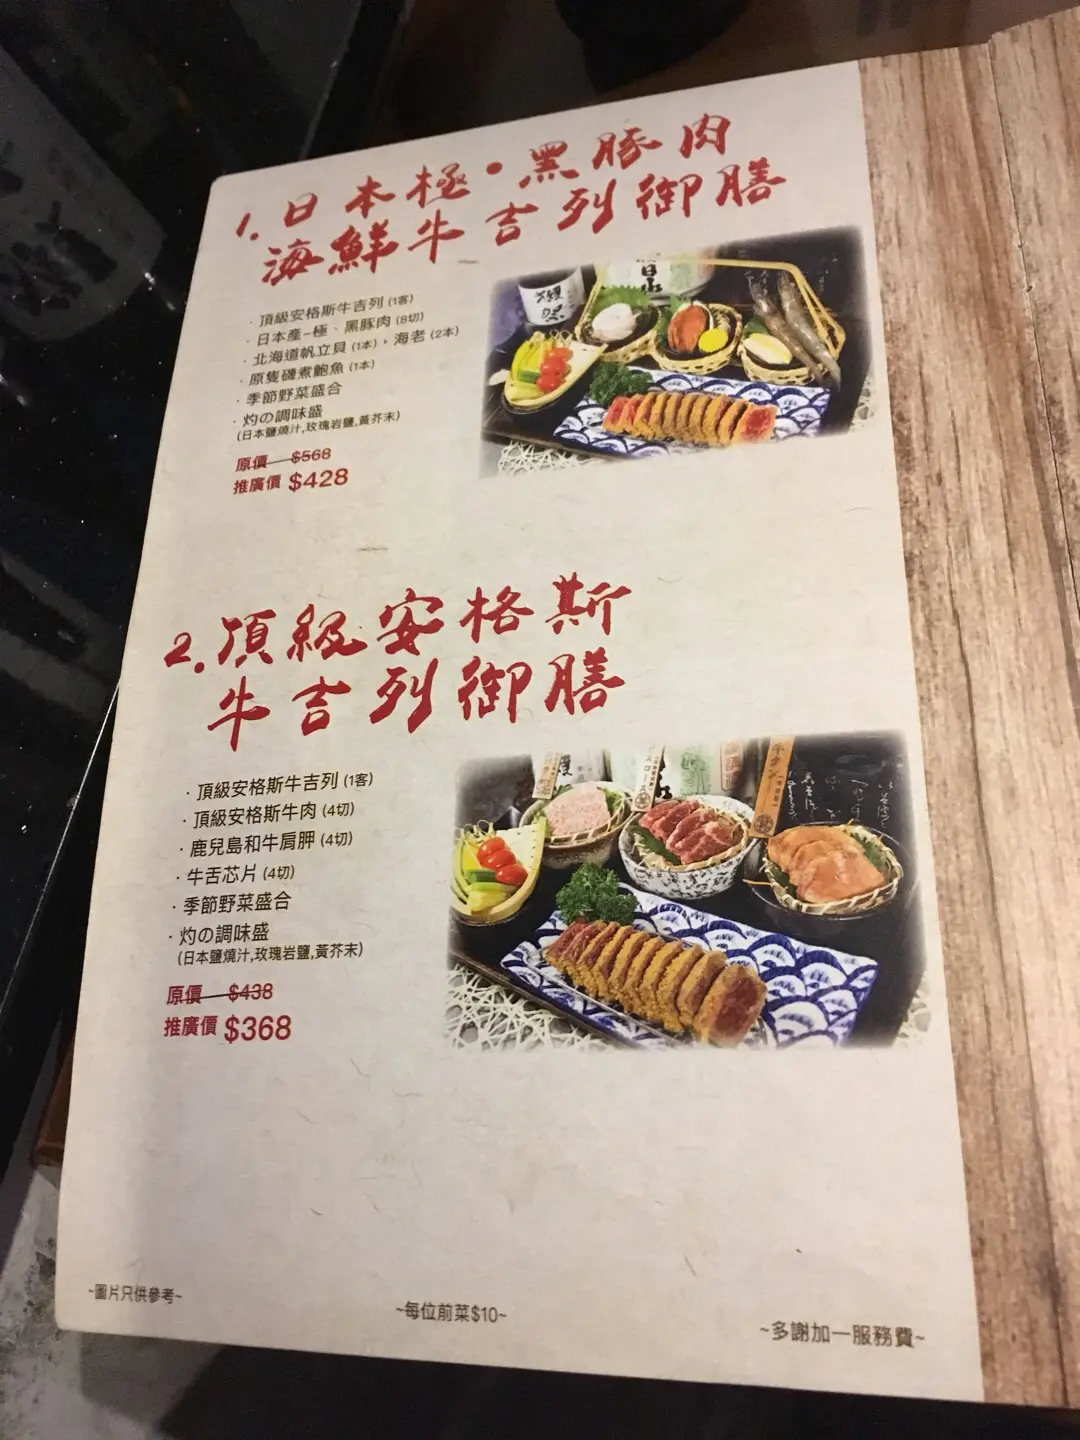 1. 日本極・黑豚肉
海鮮牛吉列御膳
· 頂級安格斯牛吉列 (1客)
· 日本產－極·黑豚肉 (8切)
· 北海道帆立貝 (1本)，海老 (2本)
· 原隻磯煮鮑魚 (1本)
· 季節野菜盛合
· 灼の調味盛
(日本鹽燒汁,玫瑰岩鹽,黃芥末)
原價 $568
推廣價 $428
2. 頂級安格斯
牛吉列御膳
· 頂級安格斯牛吉列 (1客)
· 頂級安格斯牛肉 (4切)
· 鹿兒島和牛肩胛 (4切)
· 牛舌芯片 (4切)
· 季節野菜盛合
· 灼の調味盛
(日本鹽燒汁,玫瑰岩鹽,黃芥末)
原價 $438
推廣價 $368
~圖片只供參考~
~每位前菜$10~
~多謝加一服務費~